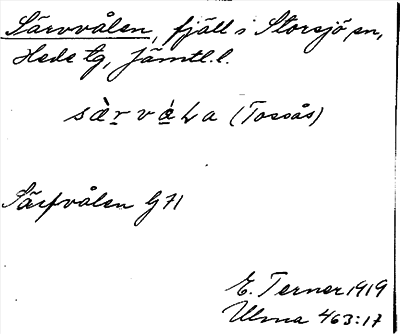 Särvvålen, fjäll i Storsjö sn,
Hede tg, Jämtl. l.
sàrvåLa (Tossås)
Särfvålen G71
E. Terner 1919
Ulma 463:17